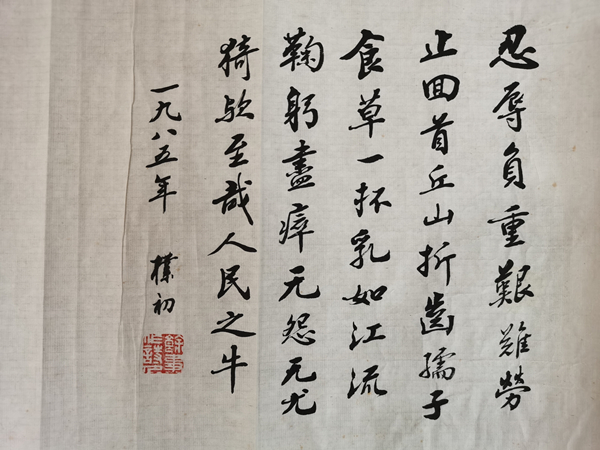 忍辱負重艱難勞
止回首丘山折齒孺子
食草一杯乳如江流
鞠躬盡瘁无怨无尤
猗欤至哉人民之牛
一九八五年 樸初